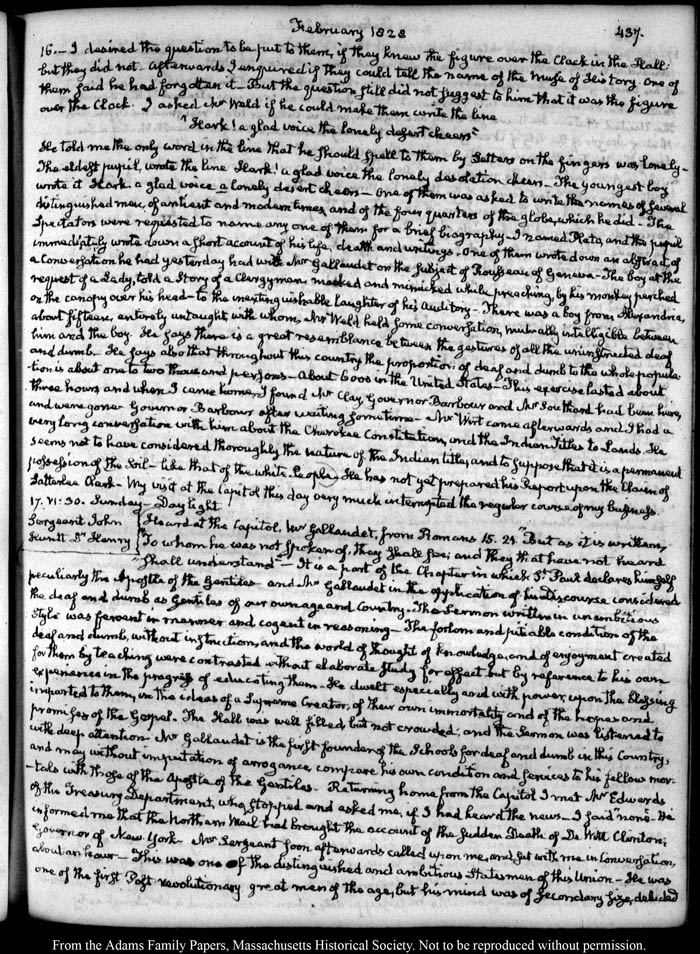 February 1828
437.
16.— I desired the question to be put to them, if they knew the figure over the Clock in the Hall:
but they did not. Afterwards I enquired if they could tell the name of the Muse of History. One of
them said he had forgotten it— But the question still did not suggest to him that it was the figure
over the Clock. I asked Mr Weld if he could make them write the line
"Hark! a glad voice the lonely desert cheers"
He told me the only word in the line that he should spell to them by Letters on the fingers was, lonely—
The eldest pupil, wrote the line Hark! a glad voice the lonely desolation cheers— The youngest boy
wrote it Hark a glad voice a lonely desert cheers— One of them was asked to write the names of several
distinguished men, of antient and modern times, and of the four quarters of the globe, which he did. The
Spectators were requested to name any one of them for a brief biography— I named Plato, and the pupil
immediately wrote down a short account of his life, death and writings. One of them wrote down an abstract of
a Conversation he had yesterday had with Mr Gallaudet on the subject of Rousseau of Geneva— The boy at the
request of a Lady, told a Story of a Clergyman, mocked and mimicked while preaching, by his monkey perched
on the canopy over his head— to the inextinguishable laughter of his Auditory— There was a boy from Alexandria,
about fifteen, entirely untaught, with whom, Mr Weld held some conversation, mutually intelligible between
him and the boy. He says there is a great resemblance between the gestures of all the uninstructed deaf
and dumb— He says also that throughout this country the proportion of deaf and dumb to the whole popula-
tion is about one to two thousand persons— about 6000 in the United States— This exercise lasted about
three hours and when I came home, I found Mr Clay, Governor Barbour and Mr Southard had been here,
and were gone— Governor Barbour after waiting sometime— Mr Wirt came afterwards and I had a
very long conversation with him about the Cherokee Constitution, and the Indian Titles to Lands. He
seems not to have considered thoroughly the nature of the Indian title, and to suppose that it is a permanent
possession of the Soil— like that of the white People. He has not yet prepared his Report upon the Claim of
Satterlee Clark— My visit at the Capitol this day very much interrupted the regular course of my business.
17. VI:30. Sunday— Day light
Sergeant John
Heard at the Capitol, Mr Gallaudet, from Romans 15. 21 "But as it is written,
Henry
To whom he was not spoken of, they shall see; and they that have not heard
"shall understand"— It is a part of the Chapter in which St. Paul declares himself
peculiarly the Apostle of the Gentiles— and Mr Gallaudet in the application of his Discourse considered
the deaf and dumb as Gentiles of our own age and Country. The Sermon written in unambitious
style was fervent in manner and cogent in reasoning— The forlorn and pitiable condition of the
deaf and dumb, without instruction, and the world of thought of knowledge, and of enjoyment created
for them by teaching were contrasted without elaborate study for effect but by reference to his own
experience in the progress of educating them— He dwelt especially and with power, upon the blessing
imparted to them, in the ideas of a Supreme Creator, of their own immortality and of the hopes and
promises of the Gospel. The Hall was well filled, but not crowded; and the Sermon was listened to
with deep attention— Mr Gallaudet is the first founder of the Schools for deaf and dumb in this Country,
and may without imputation of arrogance, compare his own condition and services to his fellow mor-
-tals with those of the Apostle of the Gentiles. Returning home from the Capitol I met Mr Edwards
of the Treasury Department, who stopped and asked me, if I had heard the news— I said "none". He
informed me that the Northern Mail had brought the account of the sudden Death of De Witt Clinton;
Governor of New York— Mr Sergeant soon afterwards called upon me, and sat with me in Conversation,
about an hour— This was one of the distinguished and ambitious Statesmen of this Union— He was
one of the first Post revolutionary great men of the age, but his mind was of secondary size, deluded
From the Adams Family Papers, Massachusetts Historical Society. Not to be reproduced without permission.